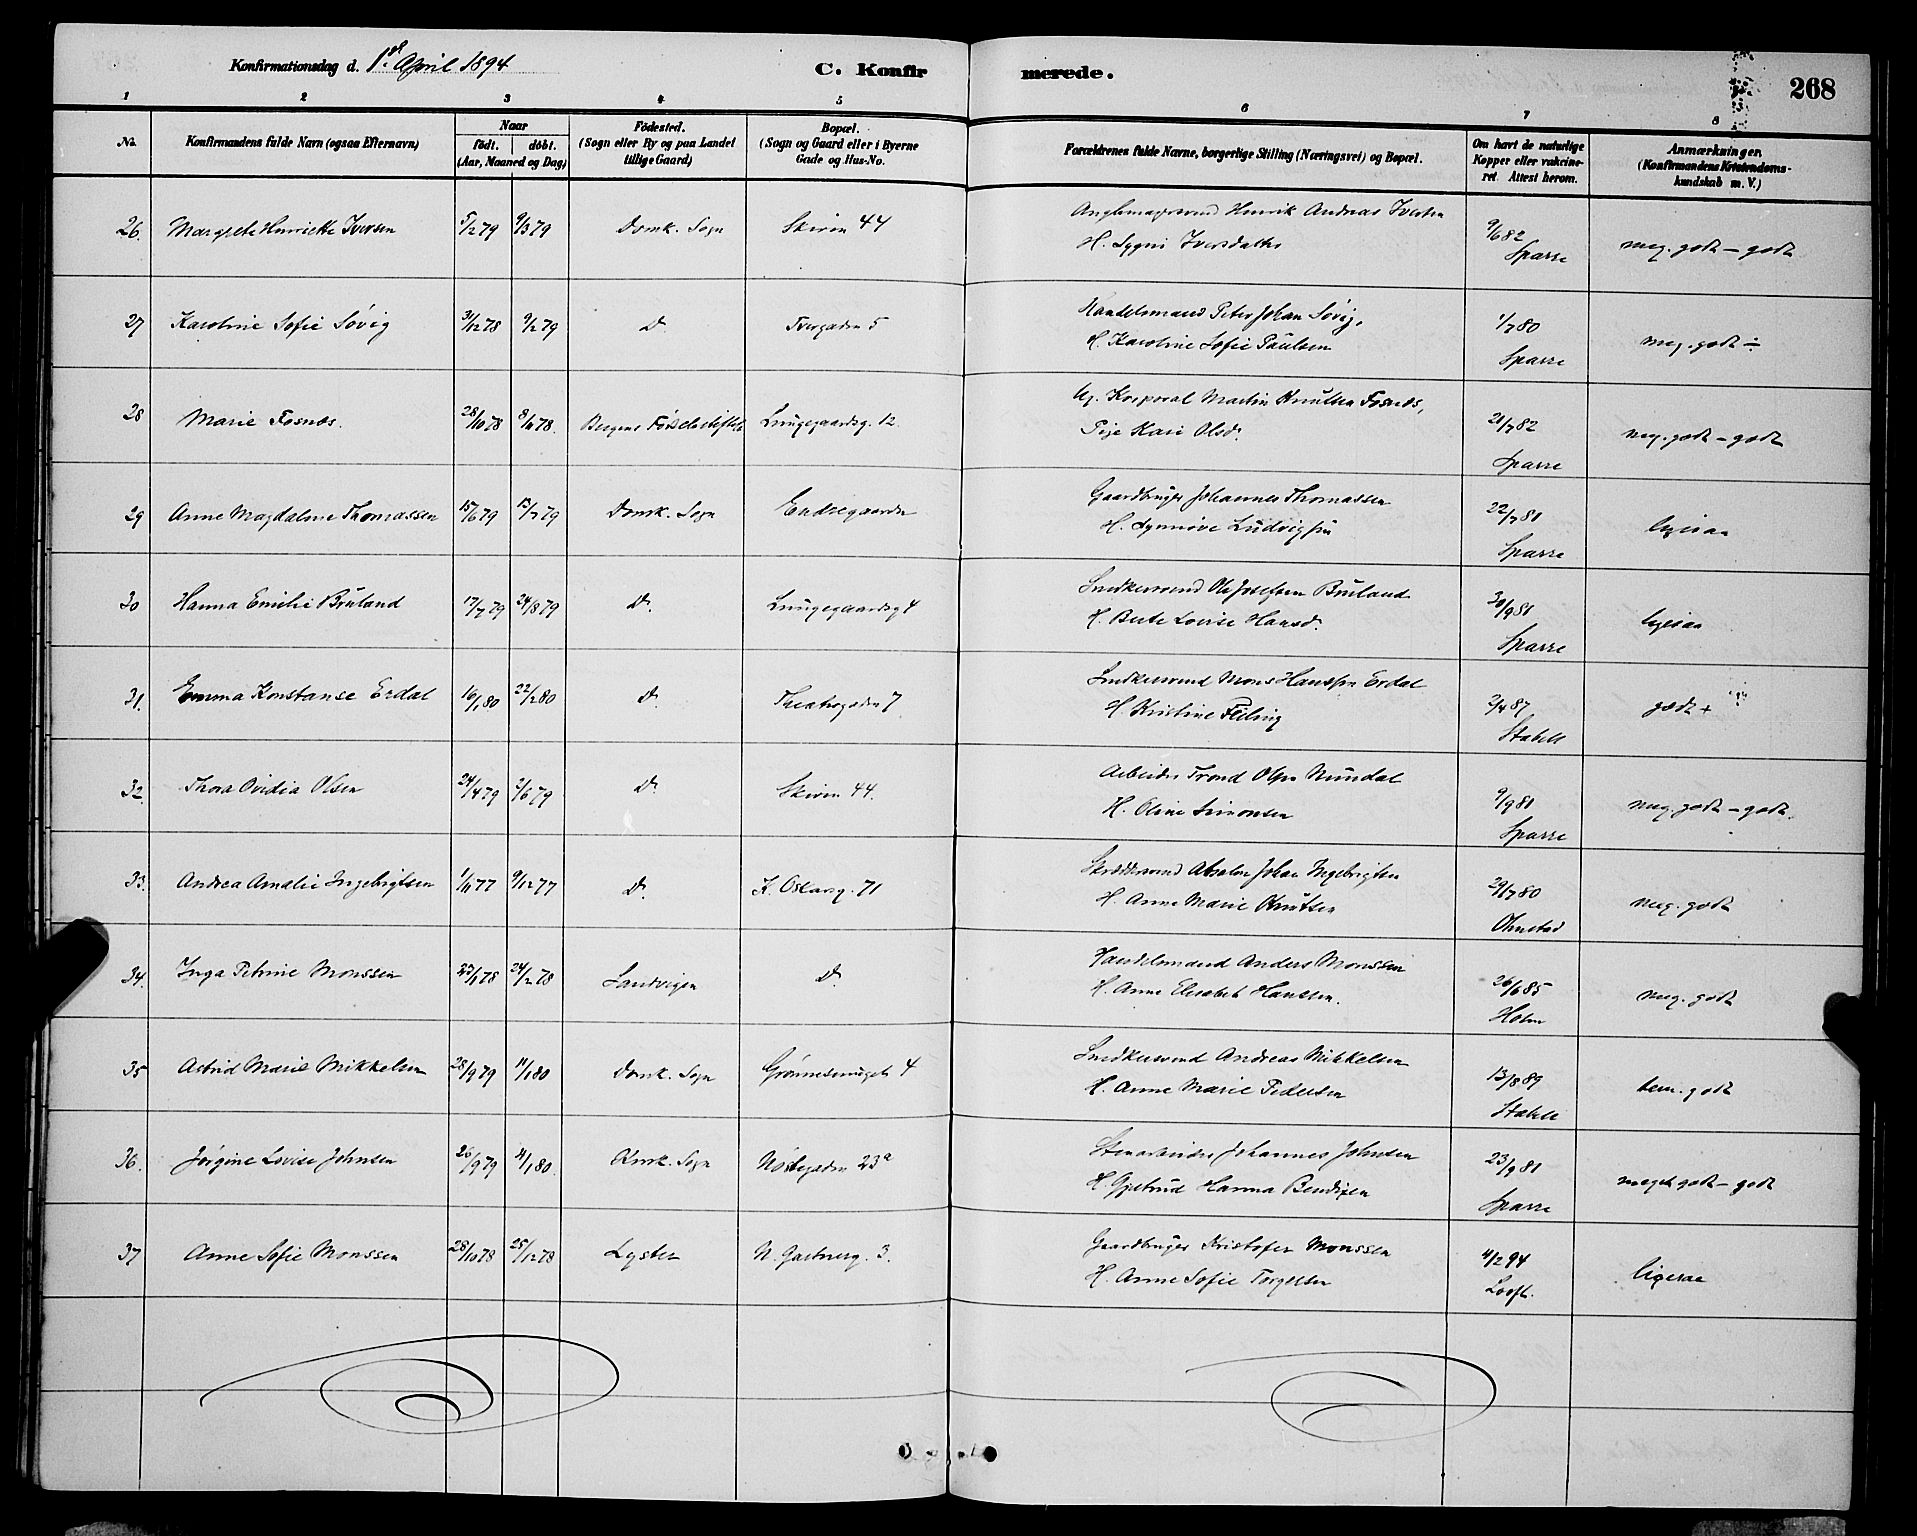 Konfirmationsdag d. 1ste April 1894
C. Konfirmerede.
268
1 2 3 4 5 6 7 8
No. Konfirmandens fulde Navn (ogsaa Efternavn) Naar födt. döbt. (Aar, Maaned og Dag) Födested. (Sogn eller By og paa Landet tillige Gaard) Bopæl. (Sogn og Gaard eller i Byerne Gade og Hus-No. Forældrenes fulde Navne, borgerlige Stilling (Næringsvei) og Bopæl. Om havt de naturlige Kopper eller vakcineret Attest herom. Anmærkninger. (Konfirmandens Kristendomskundskab m. V.)
26. Margrete Henriette Iversen 5/2 79 9/3 79 Domk. Sogn Skiven 44 Henrik Andreas Iversen 9/6 82 meg. godt - godt
H. Iversdatter Sparre
27 Karoline Sofie Søvig 31/12 78 9/2 79 Do Tvergaden 5 Handelsmand Peter Johan Søvig, 1/7 80 meg. godt ÷
H. Karoline Sofie Paulsen Sparre
28 Marie Fosnæs. 28/10 78 8/11 78. Bergens Fødselsstiftelse Lungegaardsg. 12. Ug. Korporal Martin Knutsen Fosnæs, 21/7 82 meg. godt - godt
Pige Kari Olsd. Sparre
29 Anne Magdalene Thomassen 15/6 79 13/7 79 Domk. Sogn Endregaarden Gaardbruger Johannes Thomassen 22/7 81 ligesaa
H. Synnøve Ludvigsen Sparre
30 Hanna Emilie Bruland 17/7 79 24/8 79 Do. Lungegaardsg 4 Snedkersvend Ole Josefsen Bruland 30/9 81 ligesaa
H. Berte Lovise Hansd. Sparre
31. Emma Konstanse Erdal 16/1 80 22/2 80 Do. Theatergaden 7 Snedkersvend Mons Hanssen Erdal 2/4 87 godt +
H. Kristine Stabell
32. Thora Ovidia Olsen 24/4 79 2/6 79 Do. Skiven 44. Arbeider Trond Olsen Nundal 9/9 81 meg. godt - godt.
H. Oline Simonsen Sparre
33. Andrea Amalie Ingebrigtsen 1/11 77 9/12 77 Do. K. Oskarsg. 71 Skræddersvend Absalon Johan Ingebrigtsen 29/7 80 meg. godt
H. Anne Marie Knutsen Ohnstad
34. Inga Petrine Monssen 23/1 78 24/2 78 Sandvigen Do Handelsmand Anders Monssen 26/6 85 meg. godt
H. Anne Elisabet Hanssen. Holm
35 Astrid Marie Mikkelsen 28/9 79 11/1 80 Domk. Sogn Grønnesmuget 4 Snedkersvend Andreas Mikkelsen 13/8 89 tem. godt
H. Anne Marie Pedersen Stabell
36. Jørgine Lovise Johnsen 26/9 79 4/1 80. Sogn Nøstegaden 23a Stenarbeider Johannes Johnsen 23/9 81 meget godt - godt
H. Gjertrud Hanna Bendixen Sparre
37 Anne Sofie Monssen 28/10 78 25/12 78 Lyster N. Gartnerg. 3. Gaardbruger Kristofer Monssen 4/2 94 ligesaa
H. Anne Sofie Torgersen Looft.